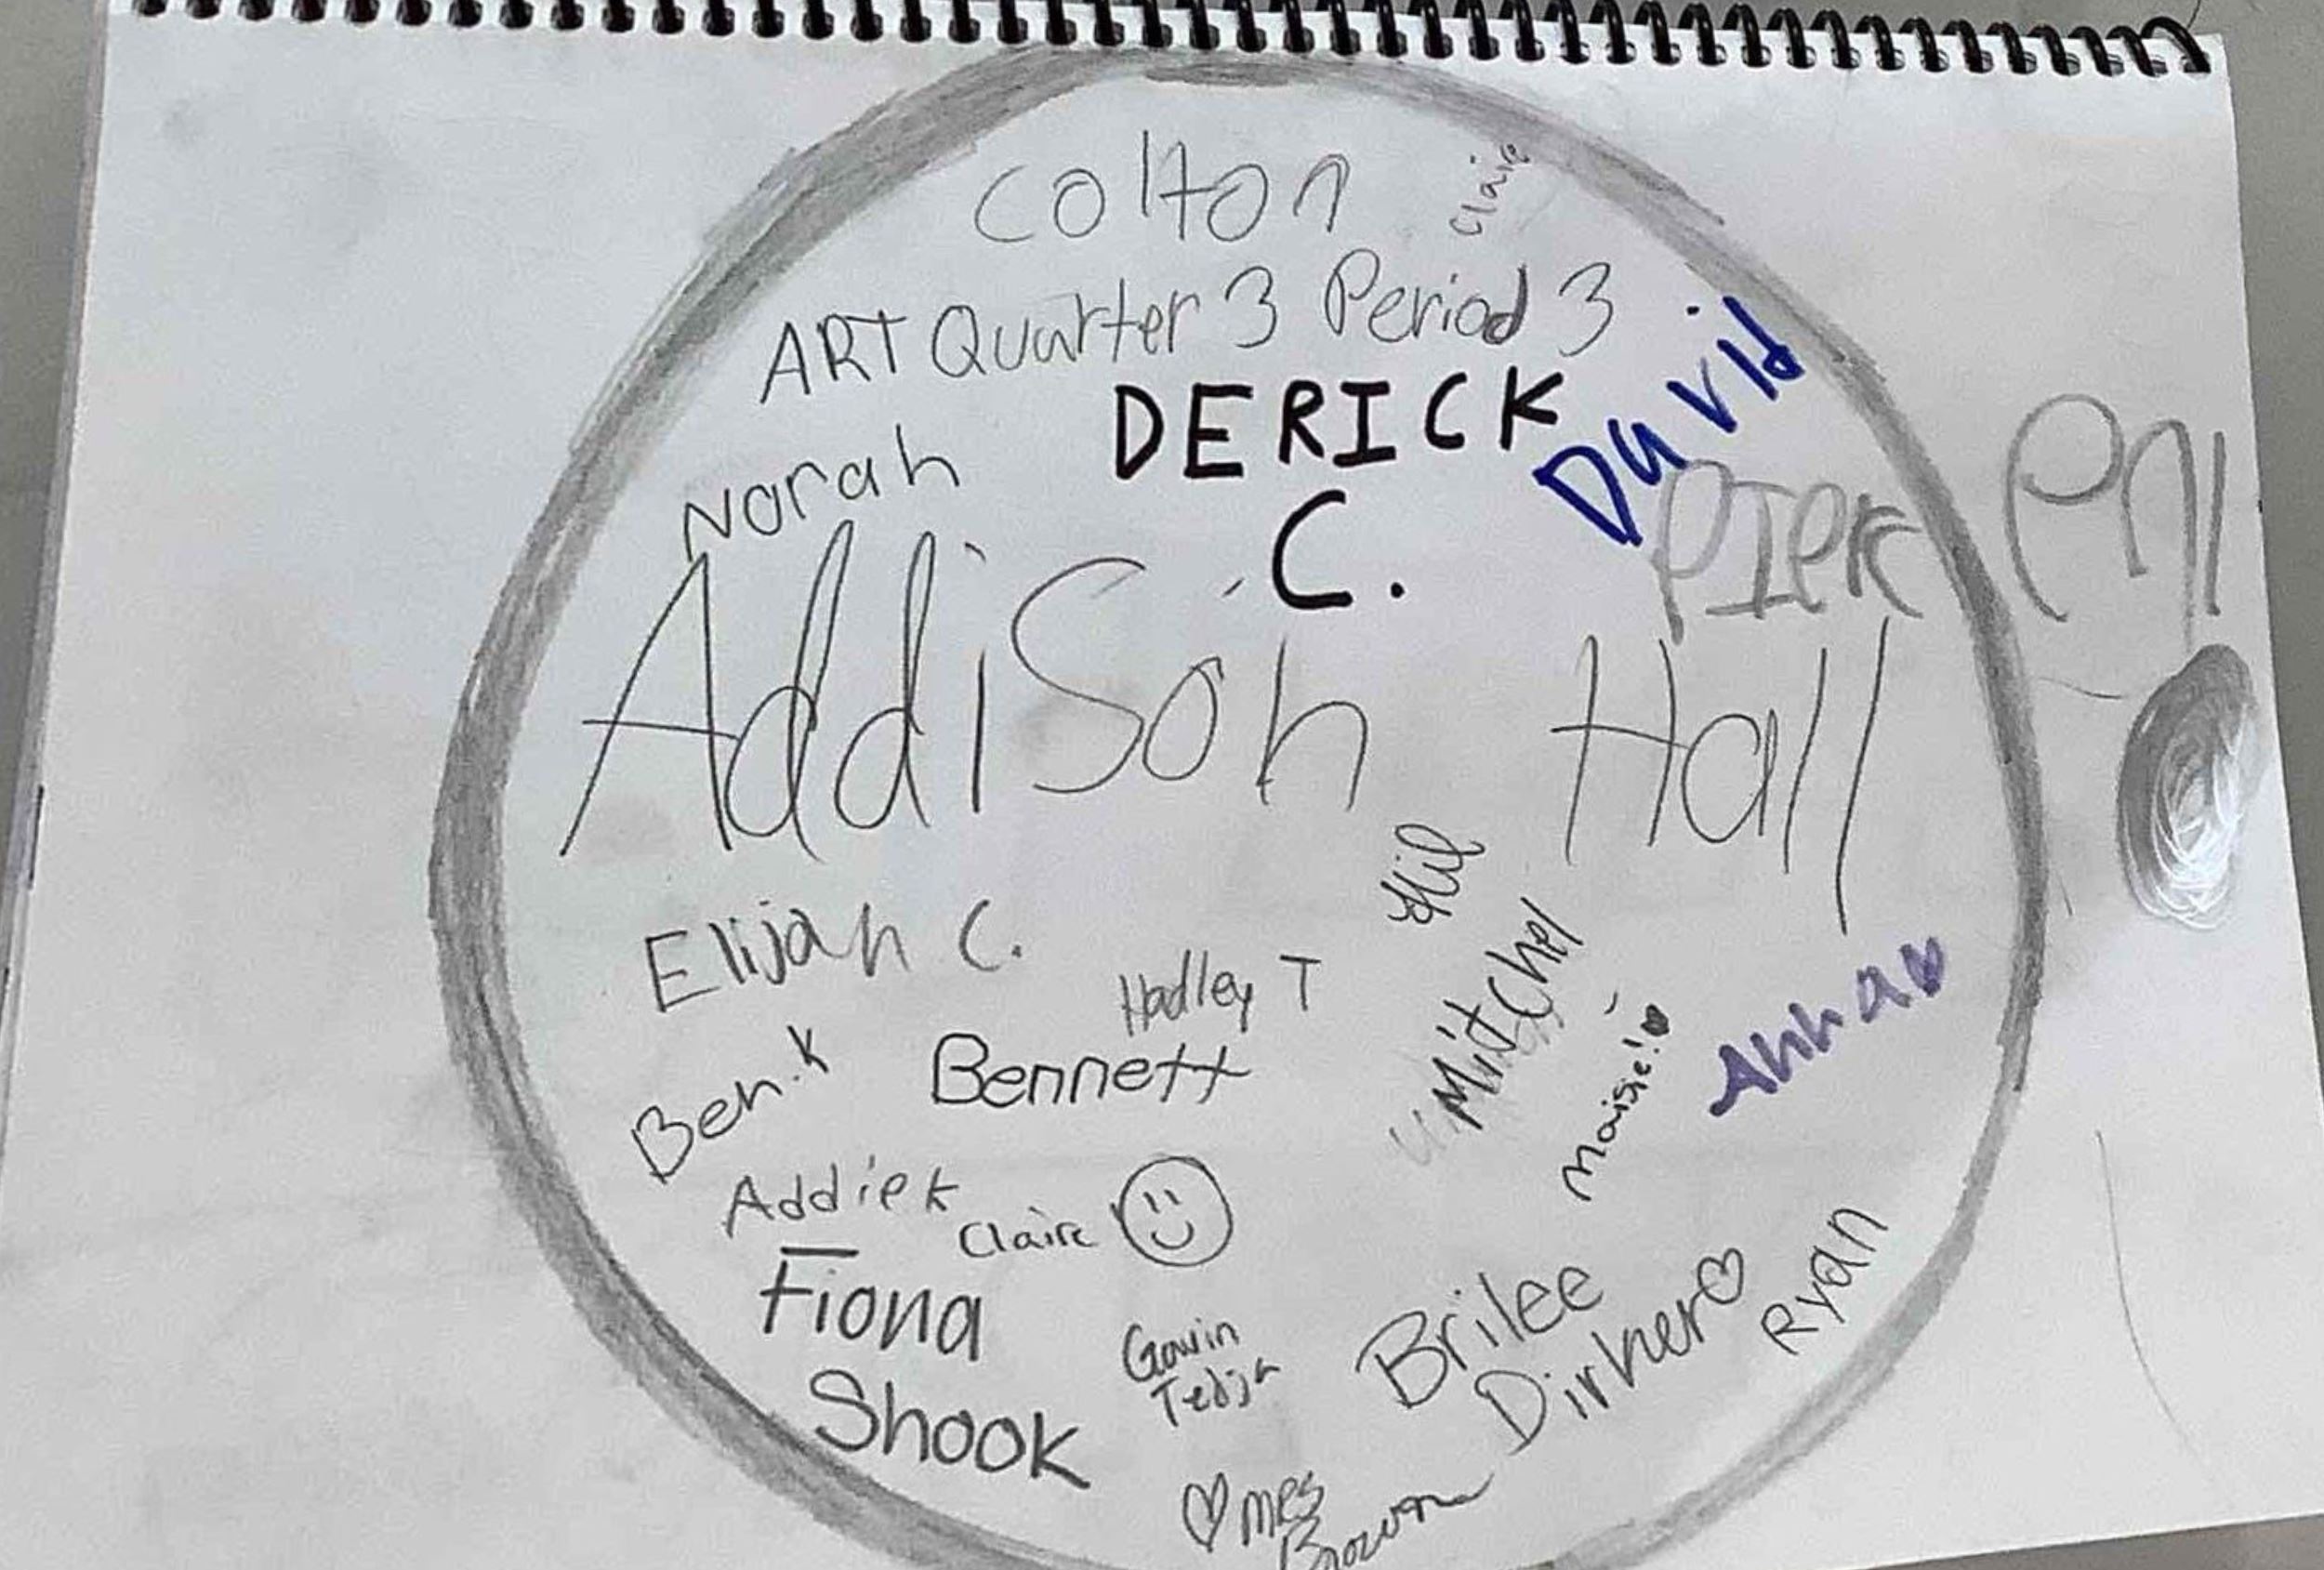 Colton
Claire
ART Quarter 3 Period 3
DERICK
C.
David
Norah
Addison Hall
Elijah C.
Hadley T
Mitchel
Ben.K
Bennett
Maisie!
Anna
Addie k
Claire
Fiona
Shook
Gavin
Tedja
Brilee
Dirker
Ryan
Mrs
Brown